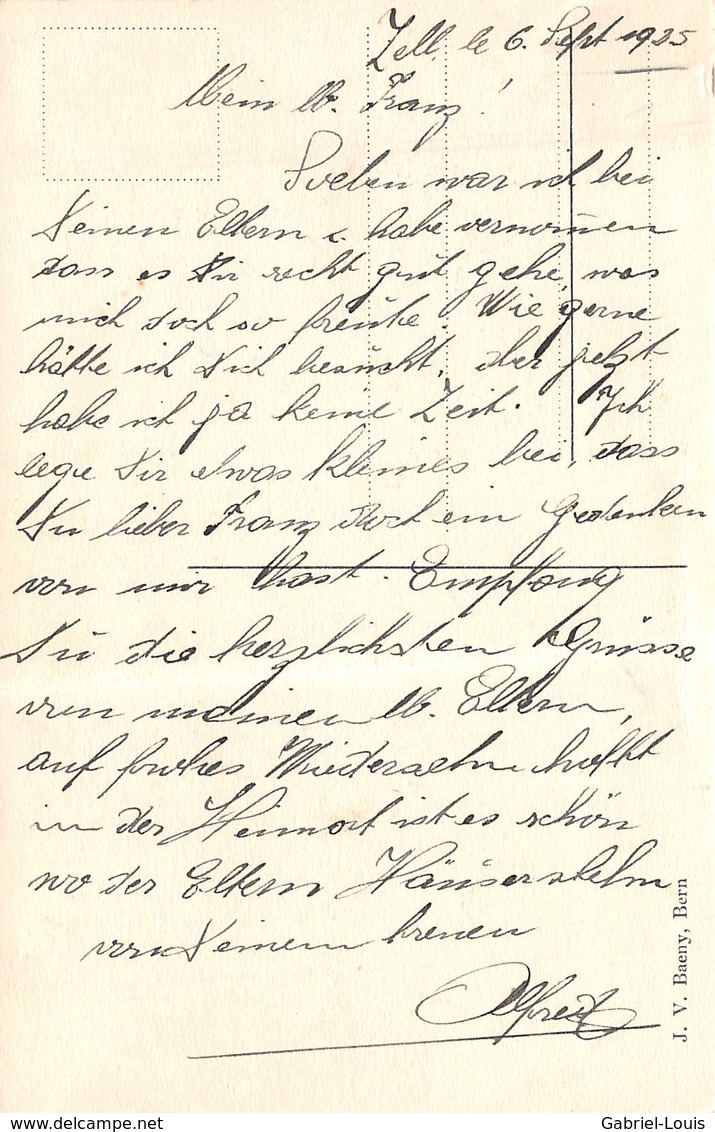 Zell, le 6. Sept 1925
Mein lb. Franz!
Soeben war ich bei
Deinen Eltern & habe vernom̄en
dass es Dir recht gut gehe, was
mich doch so freute. Wie gerne
hätte ich Dich besucht, aber jetzt
habe ich ja keine Zeit. Ich
lege Dir etwas kleines bei, dass
Du lieber Franz doch ein Gedenken
von mir hast. Empfang
Du die herzlichsten Grüsse
von meinen lb. Eltern,
auf frohes Wiedersehn hofft
in der Heimat ist es schön
wo der Eltern Häuser stehn
von Deinem treuen
Alfred
J. V. Baeny, Bern
delcampe.net
Gabriel-Louis